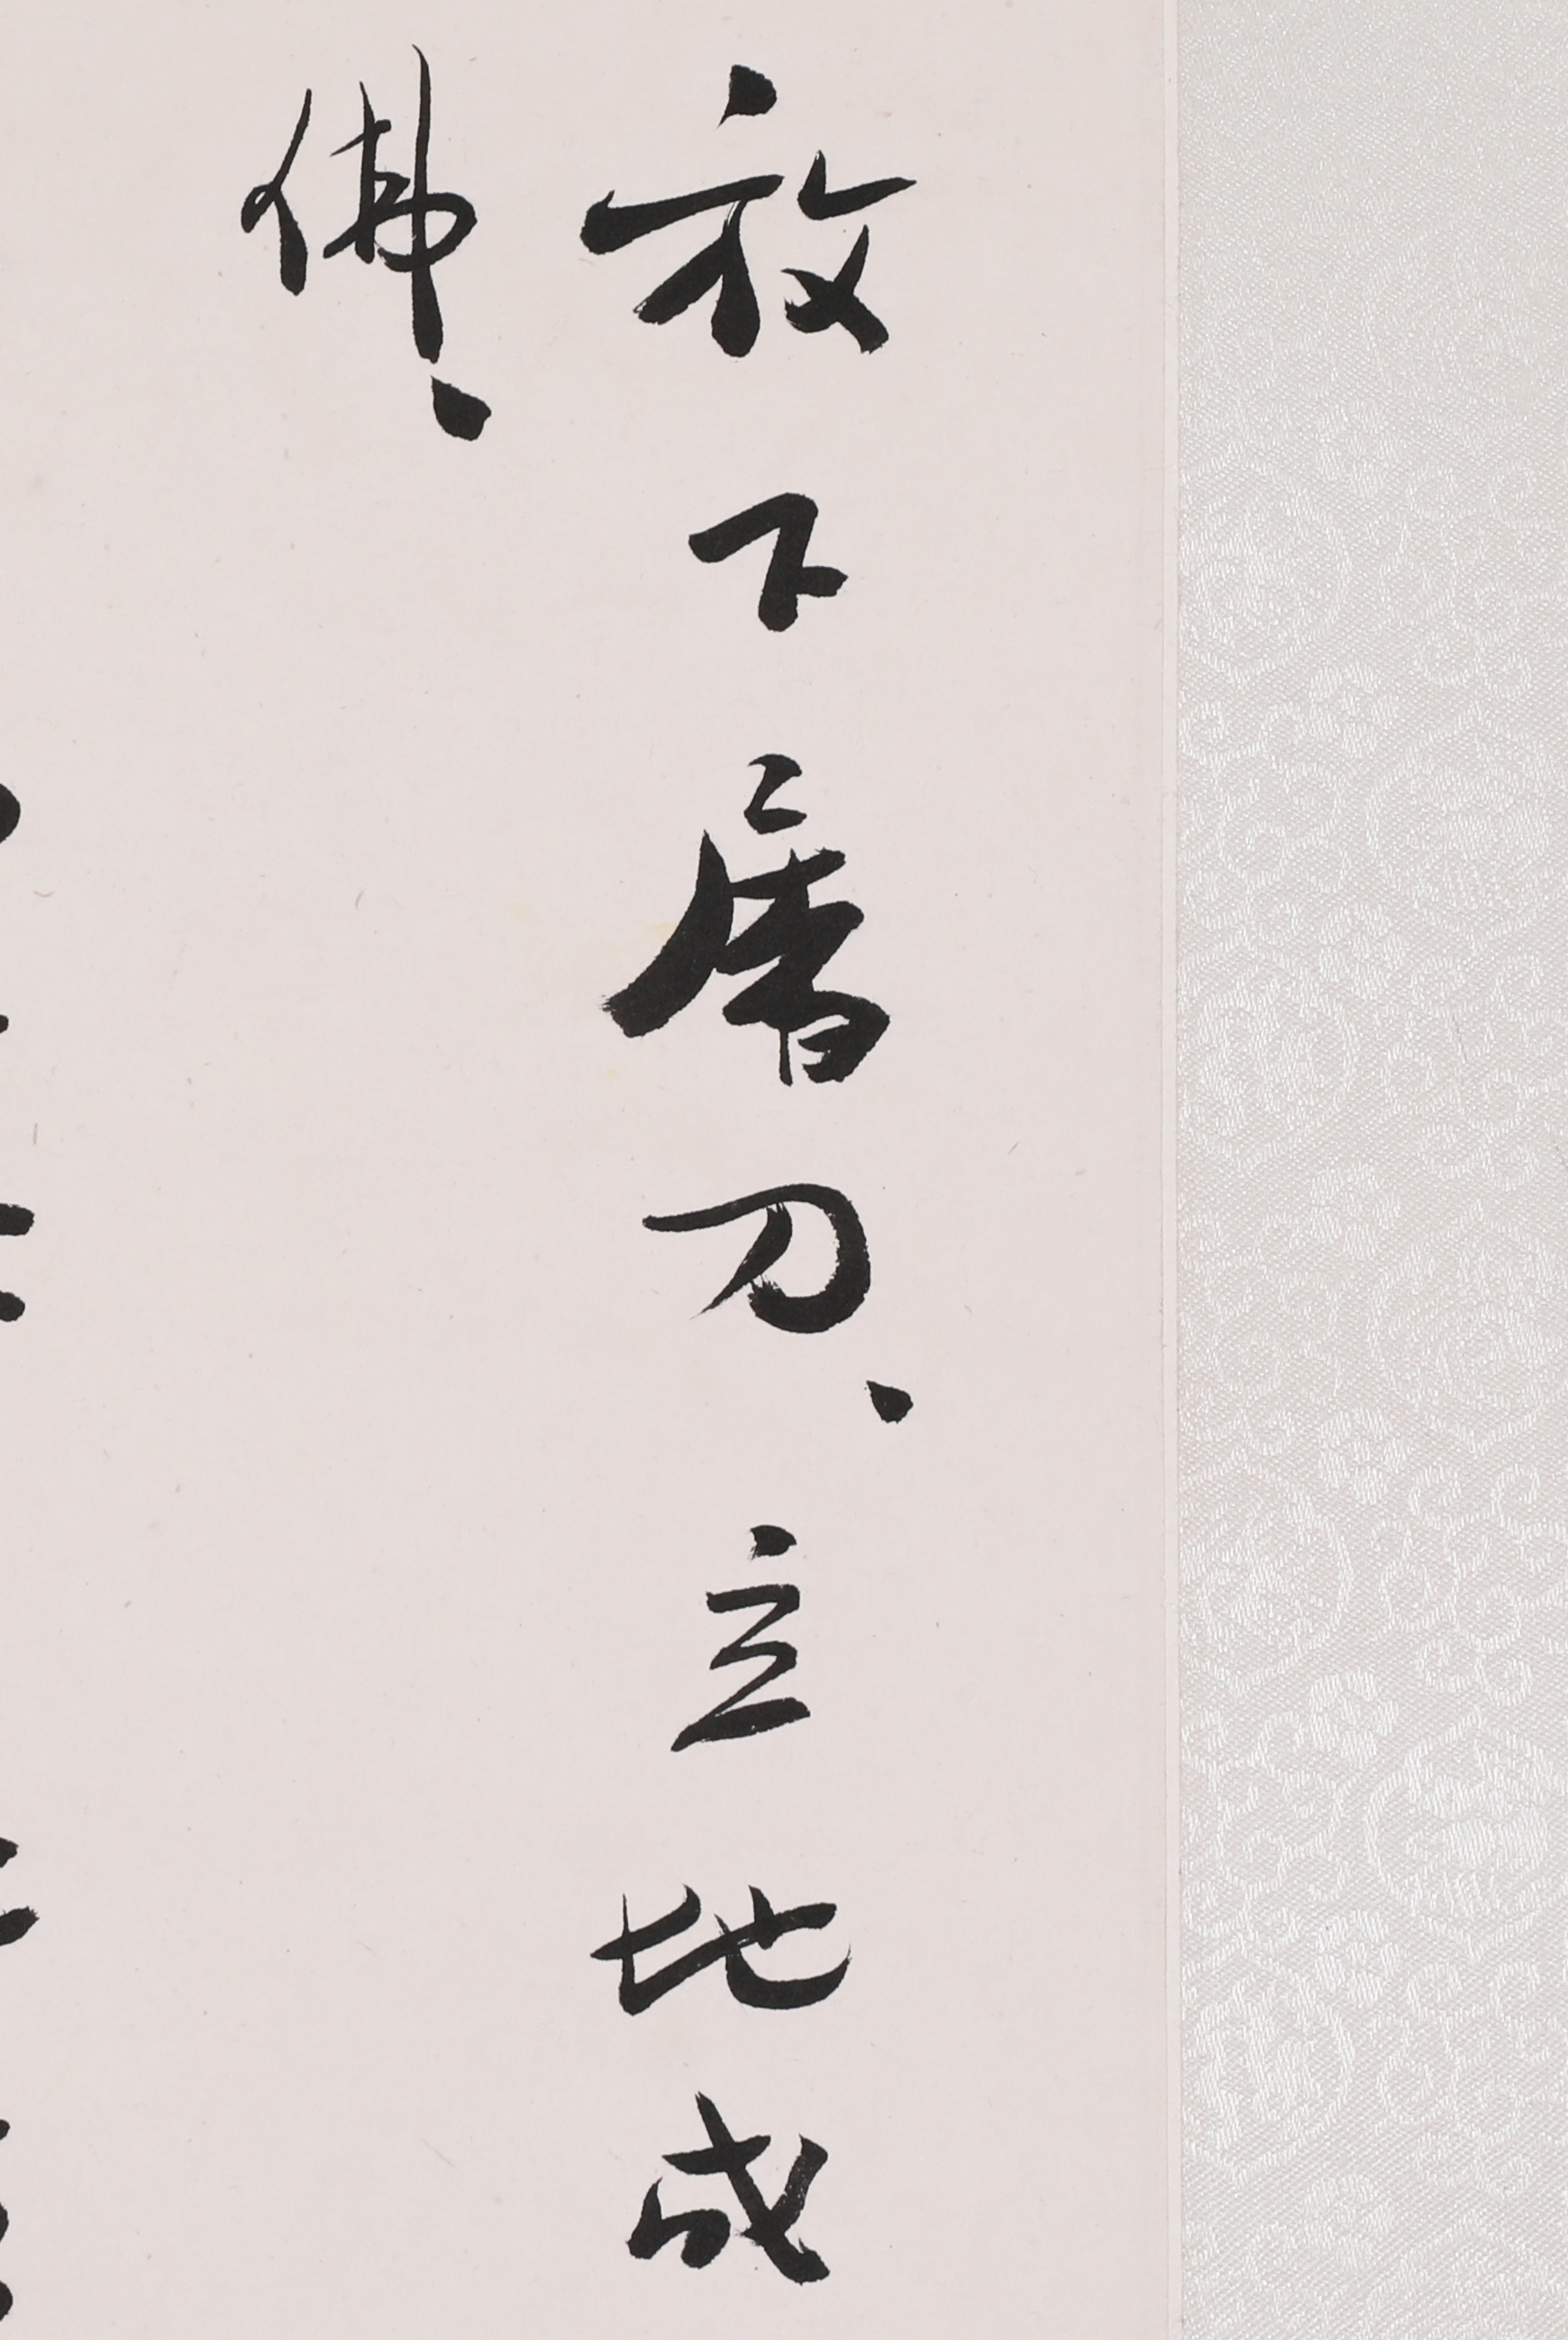 放下屠刀、立地成
佛、